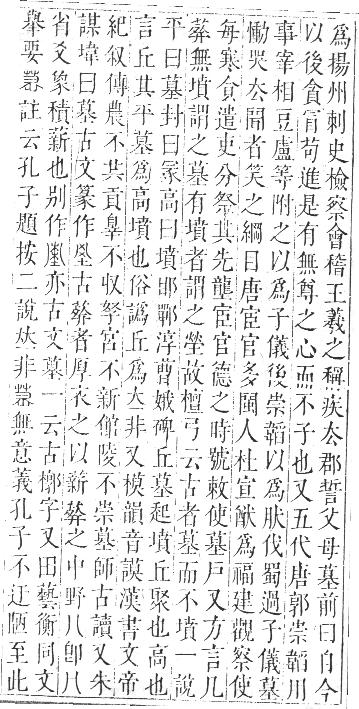 爲揚州刺史檢察會稽王羲之稱疾去郡誓父母墓前曰自今
以後貪冒苟進是有無尊之心而不子也又五代唐郭崇韜用
事宰相豆盧等附之以爲子儀後崇韜以爲肰伐蜀過子儀墓
慟哭去聞者笑之綱目唐宦官多閩人杜宣猷爲福建觀察使
每寒食遣吏分祭其先壟宦官德之時號敕使墓戶又方言凡
葬無墳謂之墓有墳者謂之塋故檀弓云古者墓而不墳一說
平曰墓封曰冢高曰墳邯鄲淳曹娥碑丘墓起墳丘聚也高也
言丘其平墓爲高墳也俗譌丘爲𠀌非又模韻音謨漢書文帝
紀叙傳農不共貢辠不收孥宮不新館陵不崇墓師古讀又朱
謀㙔曰墓古文篆作古葬者厚衣之以薪葬之中野八卽八
省爻象積薪也别作亦古文墓一云古槨字又田藝衡同文
舉要註云孔子題按二說𠀤非無意義孔子不迂陋至此